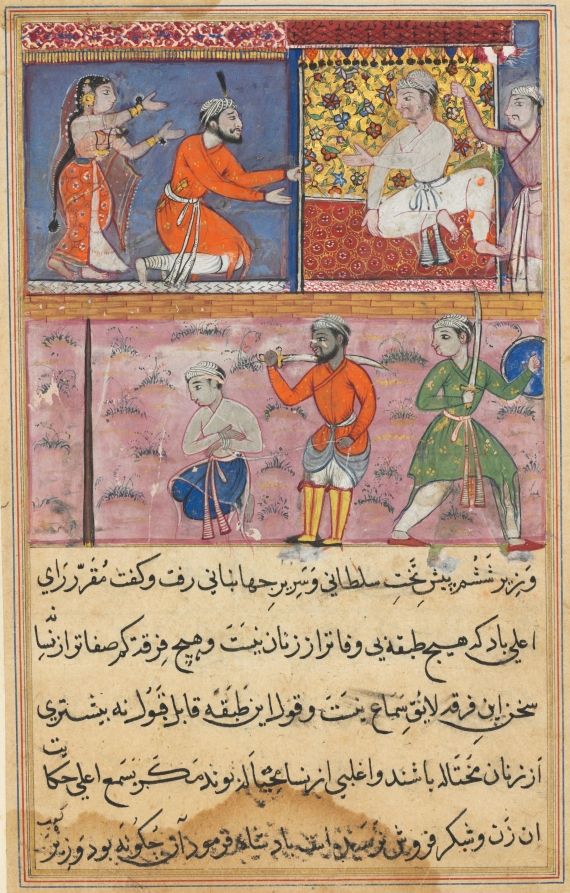 وزیر ششم پیش تخت سلطانی و سریر جهانبانی رفت و کفت مقرر رای
اعلی باد که هیچ طبقه یی وفاتر از زنان نیست و هیچ فرقه کم صفاتر از نسا
سخن این فرقه لایق سماع نیست و قول این طبقه قابل قبول نه بیشتری
از زنان محتاله باشند و اغلبی از نسا مغتاله بوند مکر بسمع اعلی حکایت
ان زن و شکر فروش نرسیده است بادشاه فرمود آن چکونه بود وزیر